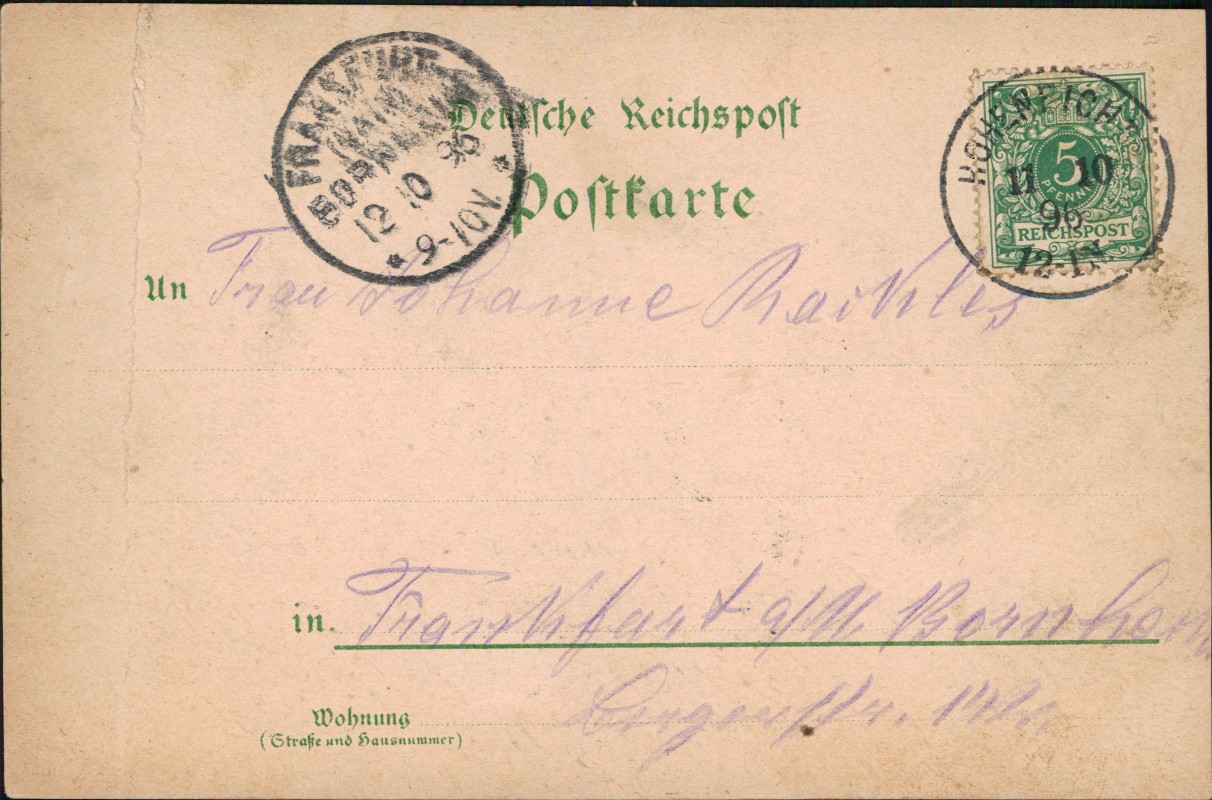 FRANKFURT
(MAIN)
BORNHEIM
12 10 96
* 9-10V *
Deutſche Reichspoſt
Poſtkarte
HOHENEICHE
11 10
96
12-1N
5
PFENNIG
REICHSPOST
An Frau Johanne
in Frankfurt a/M. Bornheim
Wohnung
(Straße und Hausnummer)